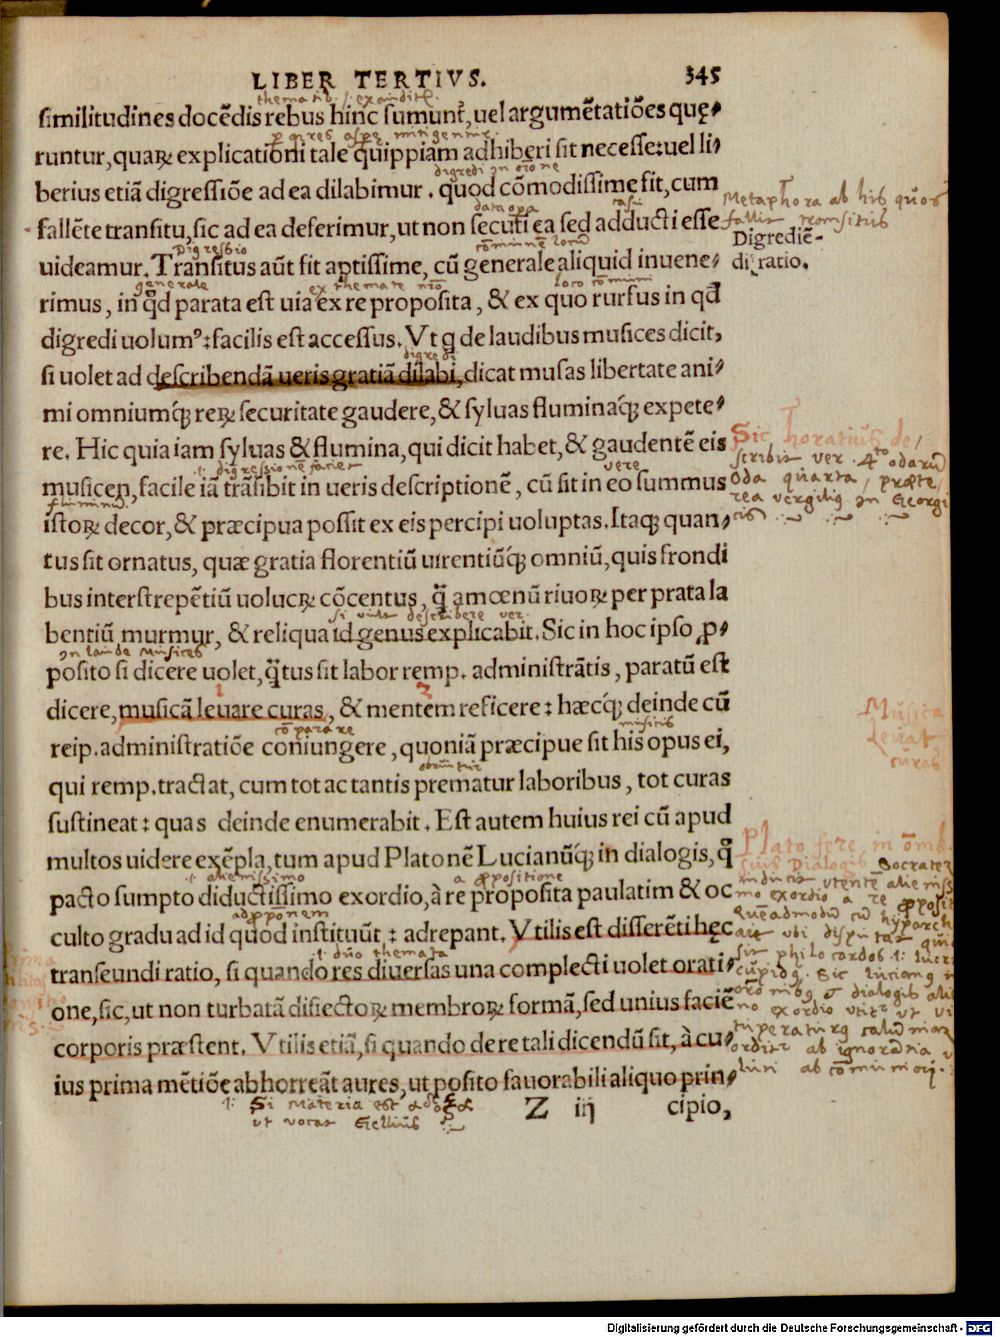 LIBER TERTIVS. 345
similitudines docēdis rebus hinc sumunt᷑, uel argumētatiões quę⸗
runtur, quaꝝ explicationi tale quippiam adhiberi sit necesse: uel li⸗
berius etiã digressiõe ad ea dilabimur. quod cõmodissime fit, cum
fallēte transitu, sic ad ea deferimur, ut non secuti ea sed adducti esse
uideamur. Transitus aūt fit aptissime, cū generale aliquid inuene⸗
rimus, in qđ parata est uia ex re proposita, & ex quo rursus in qđ
digredi uolumꝰ: facilis est accessus. Vt q de laudibus musices dicit,
si uolet ad describendã ueris gratiã dilabi, dicat musas libertate ani⸗
mi omniumq́ꝫ reꝝ securitate gaudere, & syluas fluminaq́ꝫ expete⸗
re. Hic quia iam syluas & flumina, qui dicit habet, & gaudentē eis
musicen, facile iã trãsibit in ueris descriptionē, cū sit in eo summus
istoꝝ decor, & præcipua possit ex eis percipi uoluptas. Itaqꝫ quan⸗
tus sit ornatus, quæ gratia florentiū uirentiūq́ꝫ omniū, quis frondi
bus interstrepētiū uolucꝝ cõcentus, q̃ amœnū riuoꝝ per prata la
bentiū murmur, & reliqua id genus explicabit. Sic in hoc ipso ꝓ⸗
posito si dicere uolet, q̃tus sit labor remp. administrãtis, paratū est
dicere, musicã leuare curas, & mentem reficere: hæcq́ꝫ deinde cū
reip. administratiõe coniungere, quoniã præcipue sit his opus ei,
qui remp. tractat, cum tot ac tantis prematur laboribus, tot curas
sustineat: quas deinde enumerabit. Est autem huius rei cū apud
multos uidere exēpla, tum apud Platonē Lucianūq́ꝫ in dialogis, q̃
pacto sumpto diductissimo exordio, à re proposita paulatim & oc
culto gradu ad id quod instituūt: adrepant. Vtilis est disserēti hęc
transeundi ratio, si quando res diuersas una complecti uolet orati⸗
one, sic, ut non turbatã disiectoꝝ membroꝝ formã, sed unius faciē
corporis præstent. Vtilis etiã, si quando de re tali dicendū sit, à cu⸗
ius prima mētiõe abhorreãt aures, ut posito fauorabili aliquo prin⸗
Z iij cipio,
Digrediē-
di ratio.
Metaphora ab his quos
fallit transitus
Sic horatius de/
scribit ver 4to odarū
oda quarta, præte/
rea vergiliꝯ in Georgi
cis
Musica
Leuat
curas
Plato fere in õmb
suis Dialogis Socratem
Digressio
generale
vere
Si Materia est
ut vocat Gellius
Digitalisierung gefördert durch die Deutsche Forschungsgemeinschaft - DFG